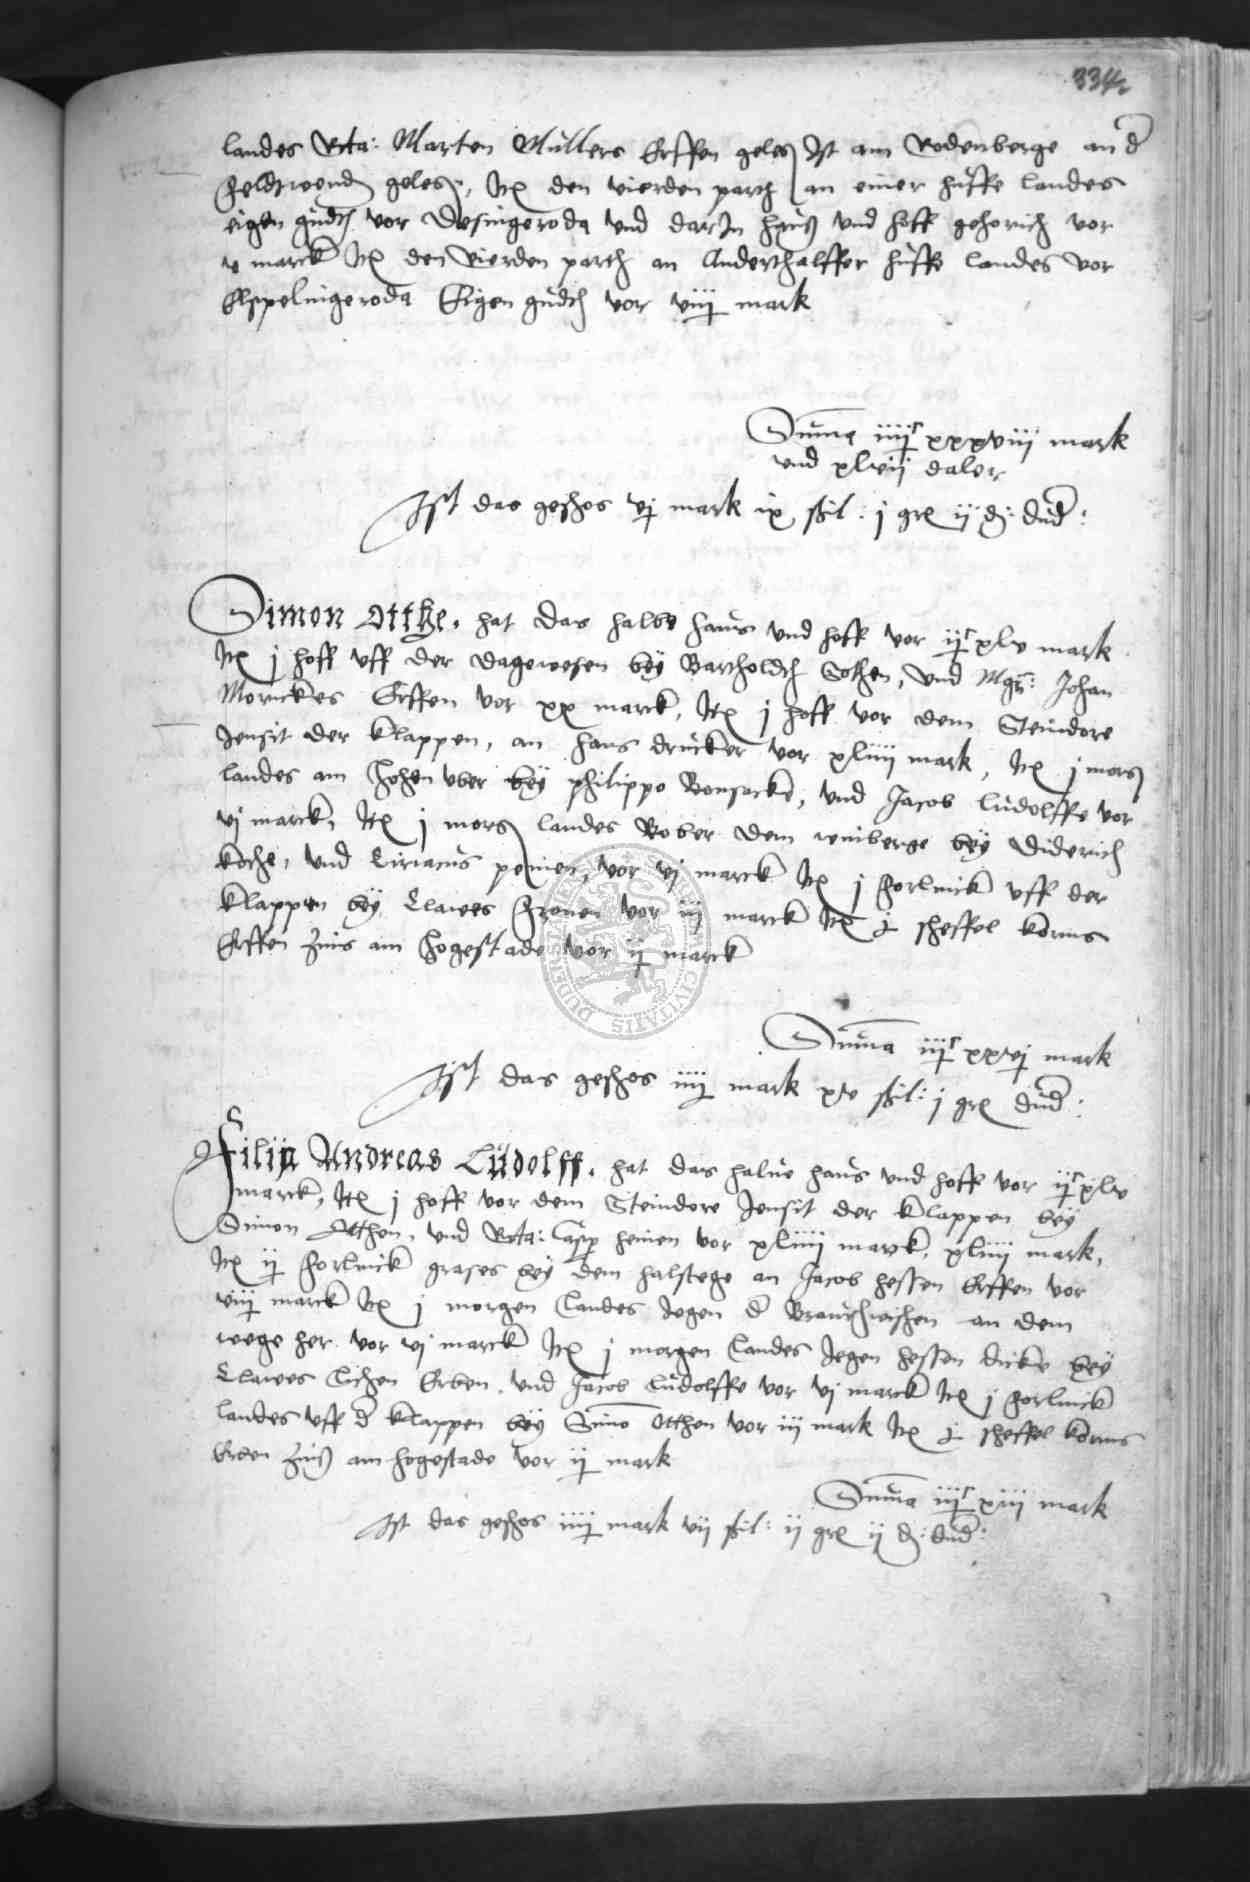 334
landes Rta: Marten Mullers Erffen geleg Ist am Rodenberge an d
heldtwend geleg, Itē den vierden parth an einer huffe landes
eigen gudth vor Desingeroda und darIn hauß und hoff gehorich vor
v marck Itē den Vierden parth an Anderthalffer huffe landes vor
Espelingeroda Eigen gudth vor viij mark
Suma iiijc xxxviij mark
und xlvij daler
Ist das geshos vj mark ix ßhil: j grē ij d: dud:
Simon Otthe. hat das halbe haus und hoff vor ijc xlv mark
Itē j hoff uff der dagewesen bey Bartholdth Sothen, und Mgr: Johan
Mornickes Erffen vor xx marck, Itē j hoff vor dem Steindore
Jensit der klappen, an hans drucker vor xliiij mark, Itē j morg
landes am hohen uber bey philippo Bonsacke, und Jacob ludolffe vor
vj marck, Itē j morg landes Bober dem winberge bey Diderich
koche, und Ciriacus peinen, vor vj marck Itē j horlinck uff der
klappen bey Clawes hronen vor iij marck Itē j sheffel korns
Erffen Zins am hogestade vor ij marck
Suma iijc xxvj mark
Ist das geshos iiij mark xv ßhil: j grē dud:
Filij Andreas Ludolff. hat das halue haus und hoff vor ijc xlv
marck, Itē j hoff vor dem Steindore Jensit der klappen bey
Simon Otthen, und Rta: Casp heinen vor xliiij marck, xliiij mark,
Itē ij horlinck grases bey dem halstege an Jacob hessen Erffen vor
viij marck Itē j morgen Landes Jegen d Braunshweishen an dem
wege her vor vj marck Itē j morgen Landes Jegen hessen dicke bey
Clawes Eichen Erben, und Jacob Ludolffe vor vj marck Itē j horlinck
landes uff d klappen bey Simō Otthen vor iij mark Itē j sheffel korns
Erben Zinß am hogestade vor ij mark
Suma iijc xiij mark
Ist das geshos iiij mark vij ßhil: ij grē ij d: dud: